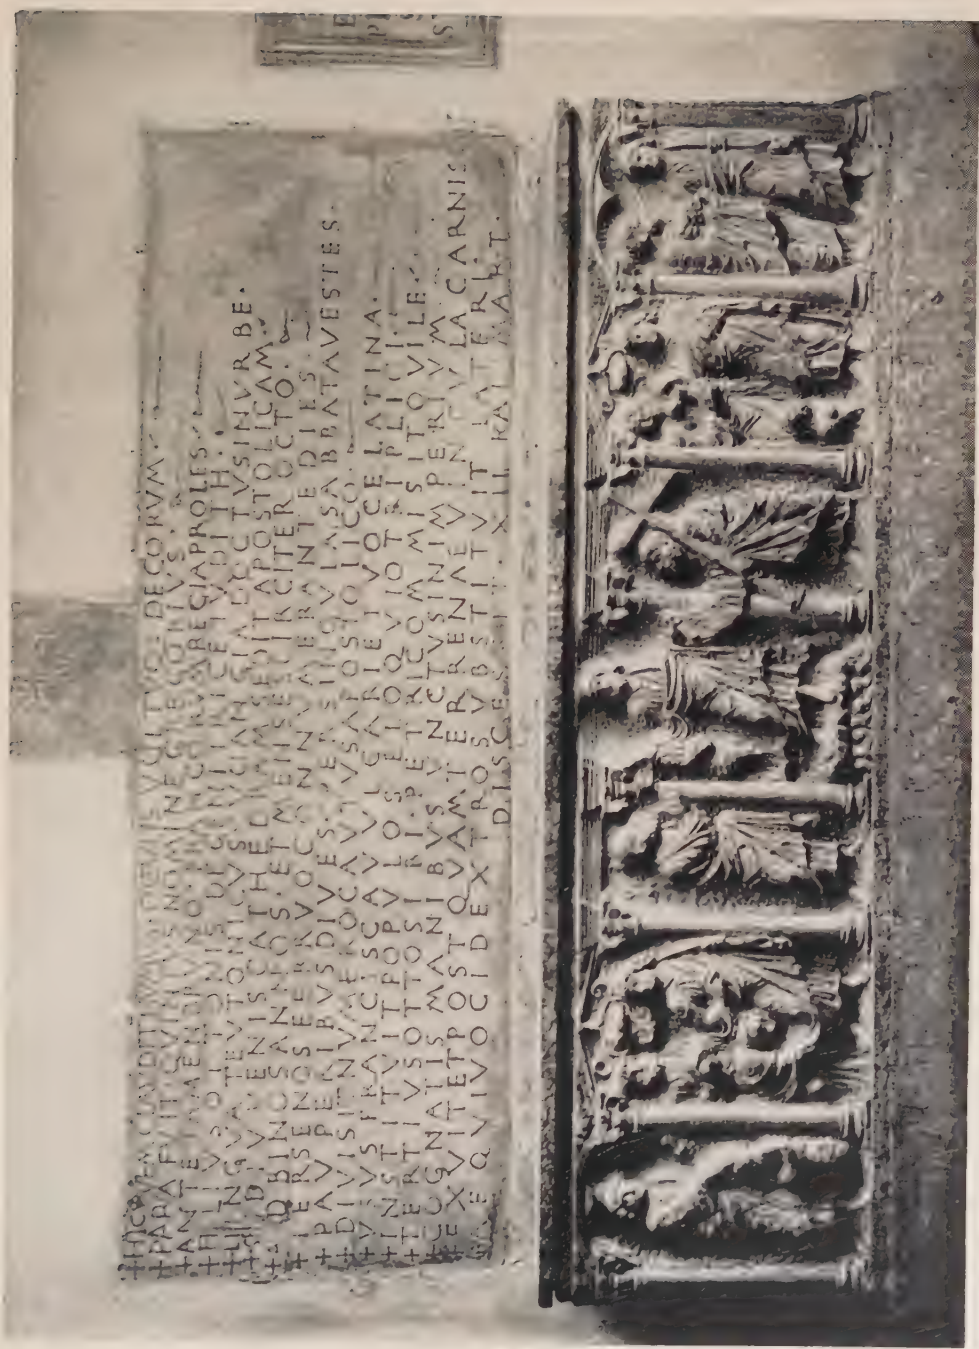 + HIC QVEM CLAVDIT HVMVS OCVLIS VVLTVQVE DECORVM ·
+ PAPA FVIT QVINTVS NOMINE GREGORIVS
+ ANTE TAMEN BRVNO FRANCORVM REGIA PROLES
+ FILIVS OTTONIS DE GENITRICE IVDITH ·
+ LINGVA TEVTONICVS VVANGIA DOCTVS IN VRBE ·
+ SED IVVENIS CATHEDRAM SEDIT APOSTOLICAM ·
+ AD BINOS ANNOS ET MENSES CIRCITER OCTO ·
+ TER SENOS FEBRVO CONNVMERANTE DIES ·
+ PAVPERIBVS DIVES PER SINGVLA SABBATA VESTES ·
+ DIVISIT NVMERO CAVTVS APOSTOLICO ·
+ VSVS FRANCISCA VVLGARI ET VOCE LATINA ·
+ INSTITVIT POPVLOS ELOQVIO TRIPLICI
+ TERTIVS OTTO SIBI PETRI COMMISIT OVILE ·
+ COGNATIS MANIBVS VNCTVS IN IMPERIVM
+ EXVIT ET POSTQVAM TERRENAE VINCVLA CARNIS
AEQVIVOCI DEXTRO SVBSTITVIT LATERI ·
DISCESSIT · XII KAL MART ·